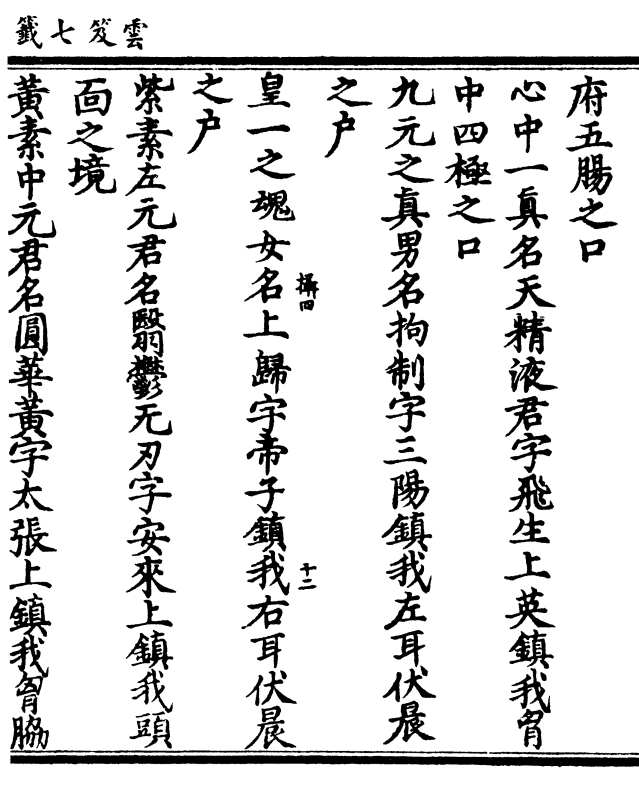 雲笈七籤
府五腸之口
心中一真名天精液君字飛生上英鎮我胷
中四極之口
九元之真男名拘制字三陽鎮我左耳伏晨
之户
皇一之魂女名上歸字帝子鎮我右耳伏晨
之户
紫素左元君名翳鬱无刃字安來上鎮我頭
面之境
黃素中元君名圓華黃字太張上鎮我胷脇
攝四
十二